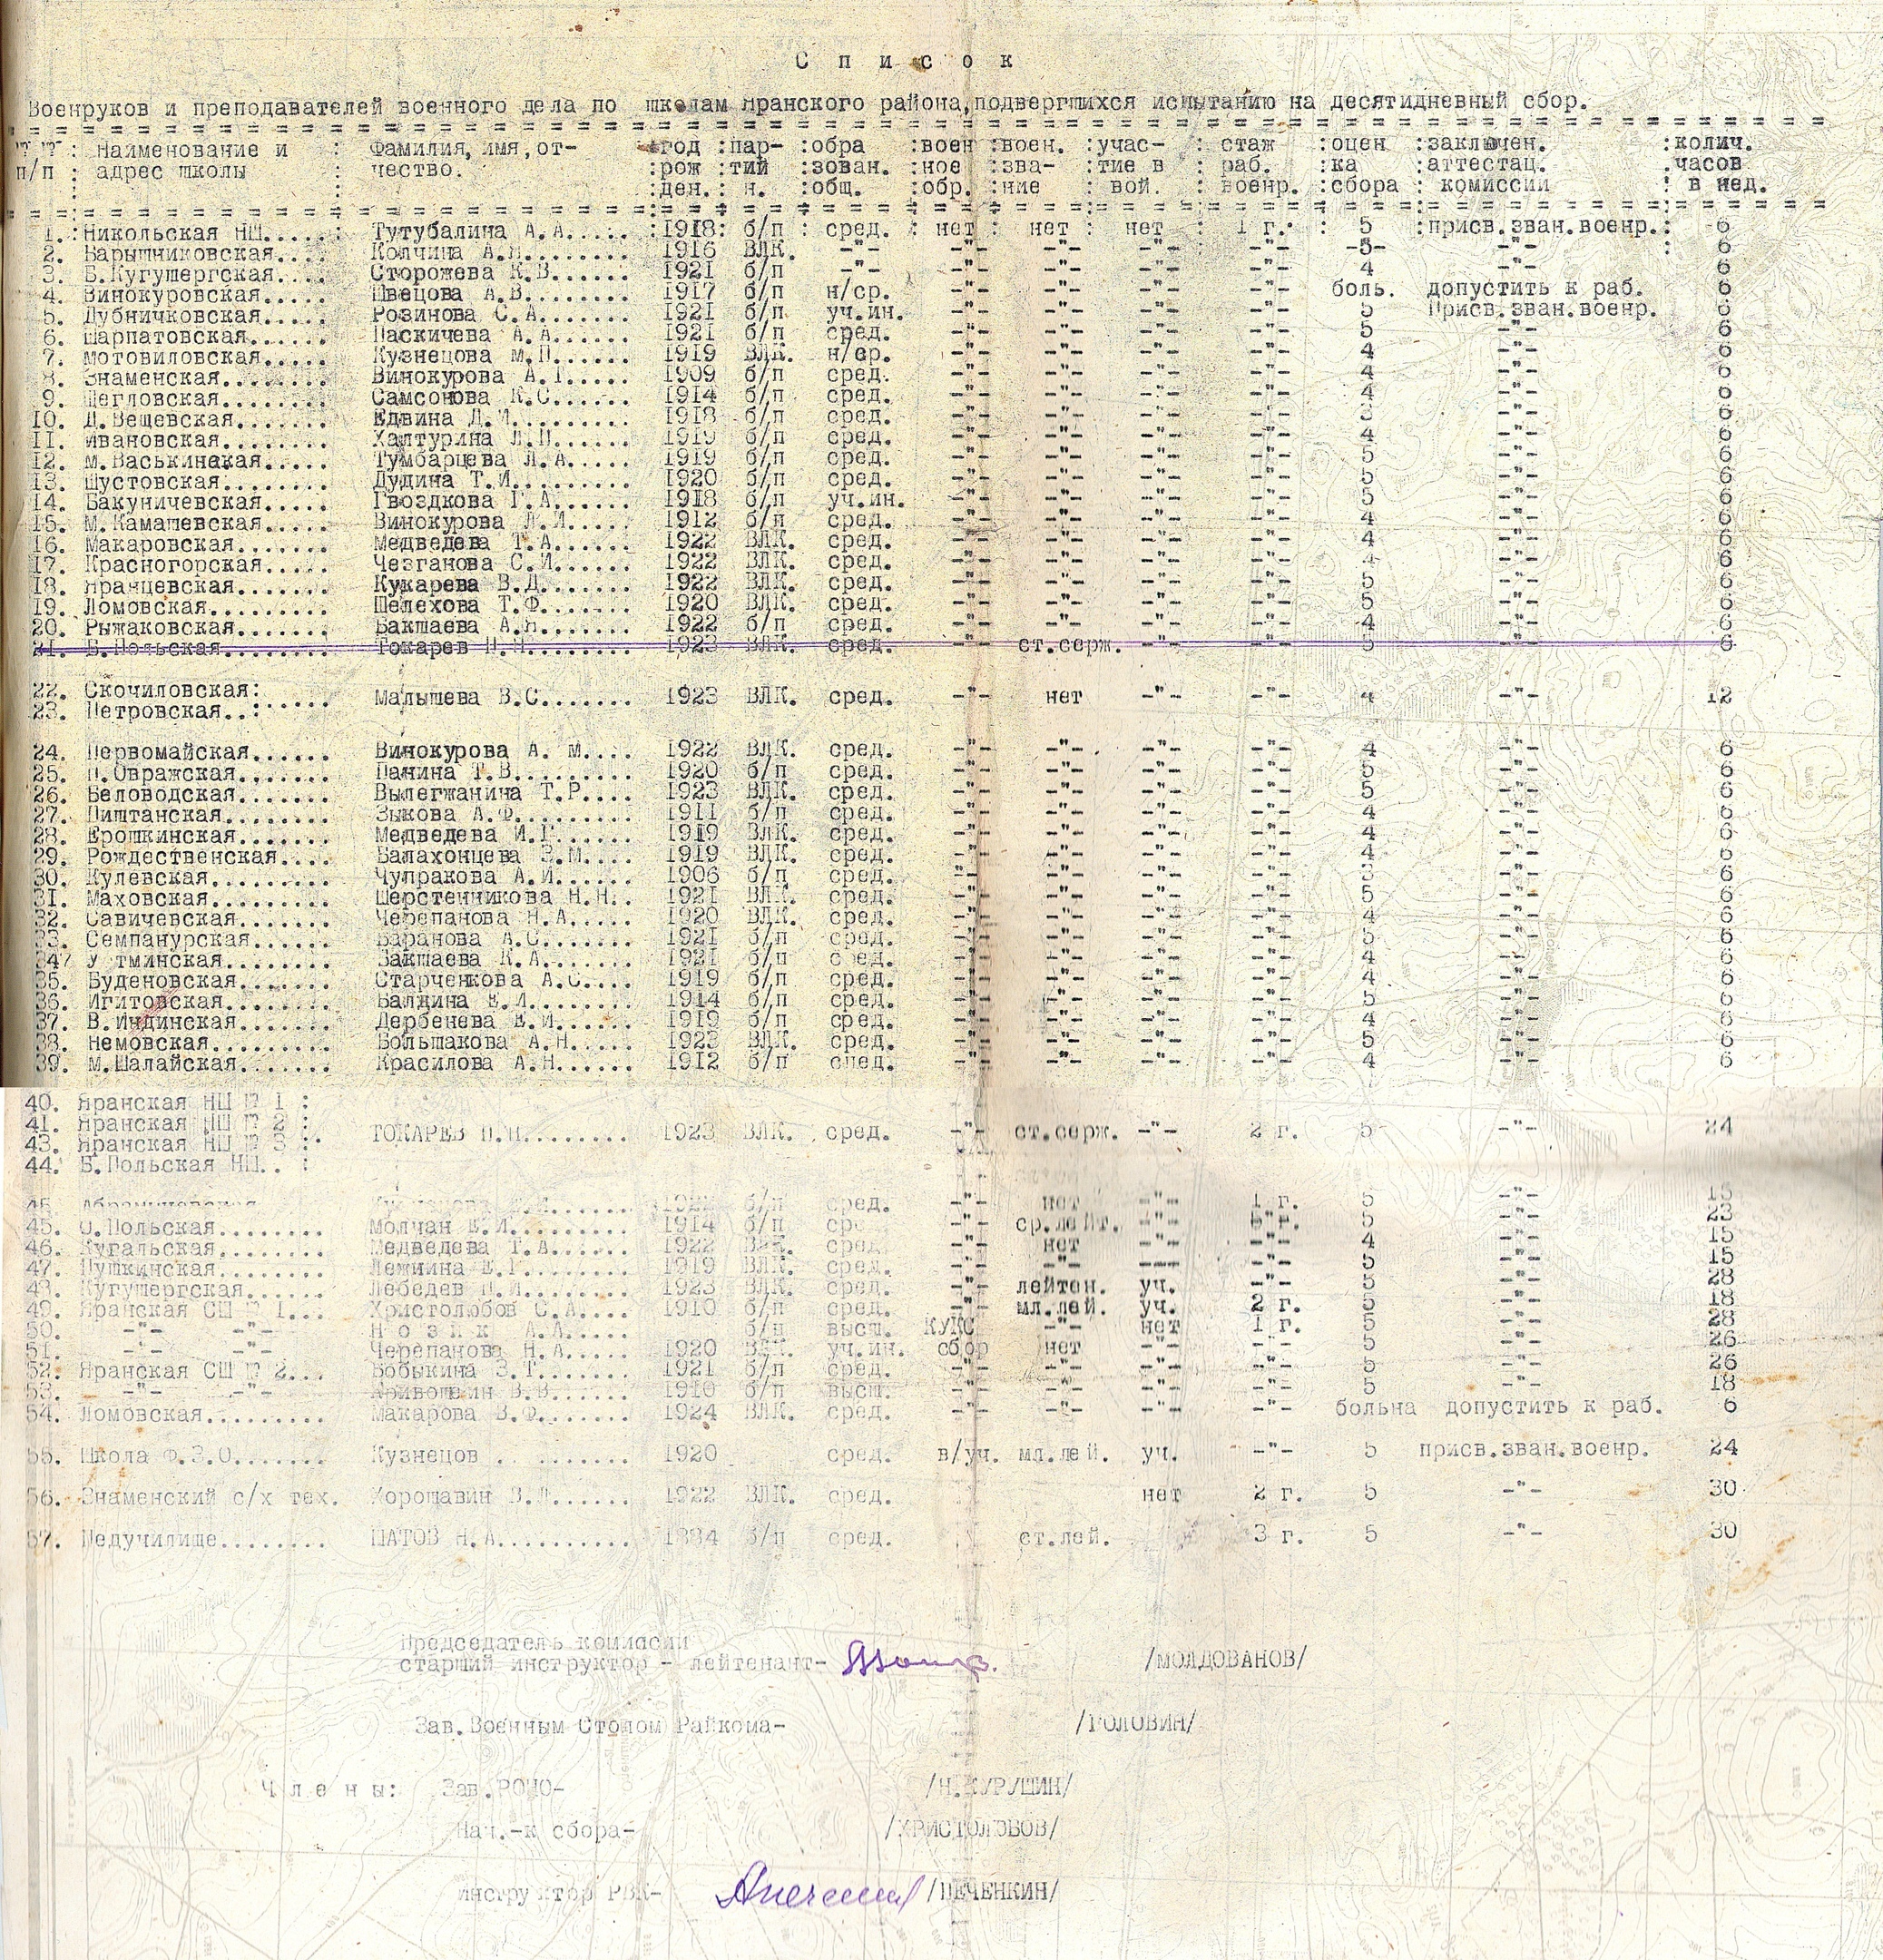 С п и с о к
Военруков и преподавателей военного дела по школам Яранского района, подвергшихся испытанию на десятидневный сбор.
№ № : Наименование и : Фамилия, имя, от- :год :пар- :обра :воен :воен. :учас- : стаж :оцен :заключен. :колич.
п/п : адрес школы : чество. :рож :тий :зован. :ное :зва- :тие в : раб. :ка :аттестац. :часов
: : :ден.: н. :общ. :обр. :ние : вой. : военр. :сбора : комиссии : в нед.
1. :Никольская НШ.....: Тутубалина А.А..... :1918: б/п : сред. : нет : нет : нет : 1 г.: 5 :присв.зван.военр.: 6
2. Барышниковская.... Колчина А.Н....... 1916 ВЛК. -"- -"- -"- -"- -"- -5- -"- 6
3. Б.Кугушергская.... Сторожева К.В..... 1921 б/п -"- -"- -"- -"- -"- 4 -"- 6
4. Винокуровская..... Швецова А.В....... 1917 б/п н/ср. -"- -"- -"- -"- боль. допустить к раб. 6
5. Дубничковская..... Розинова С.А...... 1921 б/п уч.ин. -"- -"- -"- -"- 5 Присв.зван.военр. 6
6. Шарпатовская...... Паскичева А.А..... 1921 б/п сред. -"- -"- -"- -"- 5 -"- 6
7. Мотовиловская..... Кузнецова М.П..... 1919 ВЛК. н/ср. -"- -"- -"- -"- 4 -"- 6
8. Знаменская........ Винокурова А.Г.... 1909 б/п сред. -"- -"- -"- -"- 4 -"- 6
9. Щегловская........ Самсонова К.С..... 1914 б/п сред. -"- -"- -"- -"- 4 -"- 6
10. Д.Вещевская....... Едвина Д.И........ 1918 б/п сред. -"- -"- -"- -"- 3 -"- 6
11. Ивановская........ Халтурина Л.П..... 1919 б/п сред. -"- -"- -"- -"- 4 -"- 6
12. М.Васькинская..... Тумбарцева Л.А.... 1919 б/п сред. -"- -"- -"- -"- 5 -"- 6
13. Шустовская........ Дудина Т.И........ 1920 б/п сред. -"- -"- -"- -"- 5 -"- 6
14. Бакуничевская..... Гвоздкова Г.А..... 1918 б/п уч.ин. -"- -"- -"- -"- 5 -"- 6
15. М.Камашевская..... Винокурова Л.И.... 1912 б/п сред. -"- -"- -"- -"- 4 -"- 6
16. Макаровская....... Медведева Т.А..... 1922 ВЛК. сред. -"- -"- -"- -"- 4 -"- 6
17. Красногорская..... Чезганова С.И..... 1922 ВЛК. сред. -"- -"- -"- -"- 4 -"- 6
18. Яранцевская....... Кукарева В.Д...... 1922 ВЛК. сред. -"- -"- -"- -"- 5 -"- 6
19. Ломовская......... Шелехова Т.Ф...... 1920 ВЛК. сред. -"- -"- -"- -"- 5 -"- 6
20. Рыжаковская....... Бакшаева А.Я...... 1922 б/п сред. -"- -"- -"- -"- 4 -"- 6
21. Б.Польская........ Токарев П.Н....... 1923 ВЛК. сред. -"- ст.серж. -"- -"- 5 -"- 6
22. Скочиловская:
Малышева В.С....... 1923 ВЛК. сред. -"- нет -"- -"- 4 -"- 12
23. Петровская..:
24. Первомайская...... Винокурова А. М.... 1922 ВЛК. сред. -"- -"- -"- -"- 4 -"- 6
25. П.Овражская....... Панина Т.В........ 1920 б/п сред. -"- -"- -"- -"- 5 -"- 6
26. Беловодская....... Вылегжанина Т.Р.... 1923 ВЛК. сред. -"- -"- -"- -"- 5 -"- 6
27. Пиштанская........ Зыкова А.Ф........ 1911 б/п сред. -"- -"- -"- -"- 4 -"- 6
28. Ерошкинская....... Медведева И.Г..... 1919 ВЛК. сред. -"- -"- -"- -"- 4 -"- 6
29. Рождественская.... Балахонцева З.М.... 1919 ВЛК. сред. -"- -"- -"- -"- 4 -"- 6
30. Кулевская......... Чупракова А.И..... 1906 б/п сред. -"- -"- -"- -"- 3 -"- 6
31. Маховская......... Шерстенникова Н.Н.. 1921 ВЛК. сред. -"- -"- -"- -"- 5 -"- 6
32. Савичевская....... Черепанова Н.А.... 1920 ВЛК. сред. -"- -"- -"- -"- 4 -"- 6
33. Семпанурская...... Баранова А.С...... 1921 б/п сред. -"- -"- -"- -"- 5 -"- 6
34. Уртминская........ Бакшаева К.А...... 1921 б/п сред. -"- -"- -"- -"- 4 -"- 6
35. Буденовская....... Старченкова А.С.... 1919 б/п сред. -"- -"- -"- -"- 4 -"- 6
36. Игитовская........ Балдина Е.И....... 1914 б/п сред. -"- -"- -"- -"- 5 -"- 6
37. В.Индинская....... Дербенева Е.И..... 1919 б/п сред. -"- -"- -"- -"- 4 -"- 6
38. Немовская......... Большакова А.Н.... 1923 ВЛК. сред. -"- -"- -"- -"- 5 -"- 6
39. М.Шалайская....... Красилова А.Н..... 1912 б/п сред. -"- -"- -"- -"- 4 -"- 6
40. Яранская НШ № 1 :
41. Яранская НШ № 2 :
ТОКАРЕВ П.Н........ 1923 ВЛК. сред. -"- ст.серж. -"- 2 г. 5 -"- 24
43. Яранская НШ № 3 :
44. Б.Польская НШ.. :
45. 1922 б/п сред. -"- нет -"- 1 г. 5 -"- 15
45. О.Польская........ Молчан Е.И........ 1914 б/п -"- ср.лейт. -"- 5 -"- 23
46. Кугальская........ Медведева Т.А..... 1922 ВЛК. сред. -"- нет -"- -"- 4 -"- 15
47. Пушкинская........ Лежнина Е.Г....... 1919 ВЛК. сред. -"- -"- -"- -"- 5 -"- 15
48. Кугушергская...... Лебедев П.И....... 1923 ВЛК. сред. -"- лейтен. уч. -"- 5 -"- 28
49. Яранская СШ № 1... Христолюбов С.А.... 1910 б/п сред. -"- мл.лей. уч. 2 г. 5 -"- 18
50. -"- -"- Н о з и к А.А..... б/п высш. КУКС -"- нет 1 г. 5 -"- 28
51. -"- -"- Черепанова Н.А.... 1920 ВЛК. уч.ин. сбор нет -"- -"- 5 -"- 26
52. Яранская СШ № 2... Бобыкина З.Т...... 1921 б/п сред. -"- -"- -"- -"- 5 -"- 26
53. -"- -"- Кривошеин В.В..... 1910 б/п высш. -"- -"- -"- -"- 5 -"- 18
54. Ломовская......... Макарова В.Ф...... 1924 ВЛК. сред. -"- -"- -"- -"- больна допустить к раб. 6
55. Школа Ф.З.О....... Кузнецов .. ....... 1920 сред. в/уч. мл.лей. уч. -"- 5 присв.зван.военр. 24
56. Знаменский с/х тех. Хорошавин В.Л...... 1922 ВЛК. сред. нет 2 г. 5 -"- 30
57. Педучилище........ ПАТОВ Н.А.......... 1884 б/п сред. ст.лей. 3 г. 5 -"- 30
Председатель комиссии
старший инструктор - лейтенант- /МОЛДОВАНОВ/
Зав.Военным Столом Райкома- /ГОЛОВИН/
Ч л е н ы: Зав.РОНО- /Н.КУРУШИН/
Нач.-к сбора- /ХРИСТОЛЮБОВ/
инструктор РВК- /ПЕЧЕНКИН/